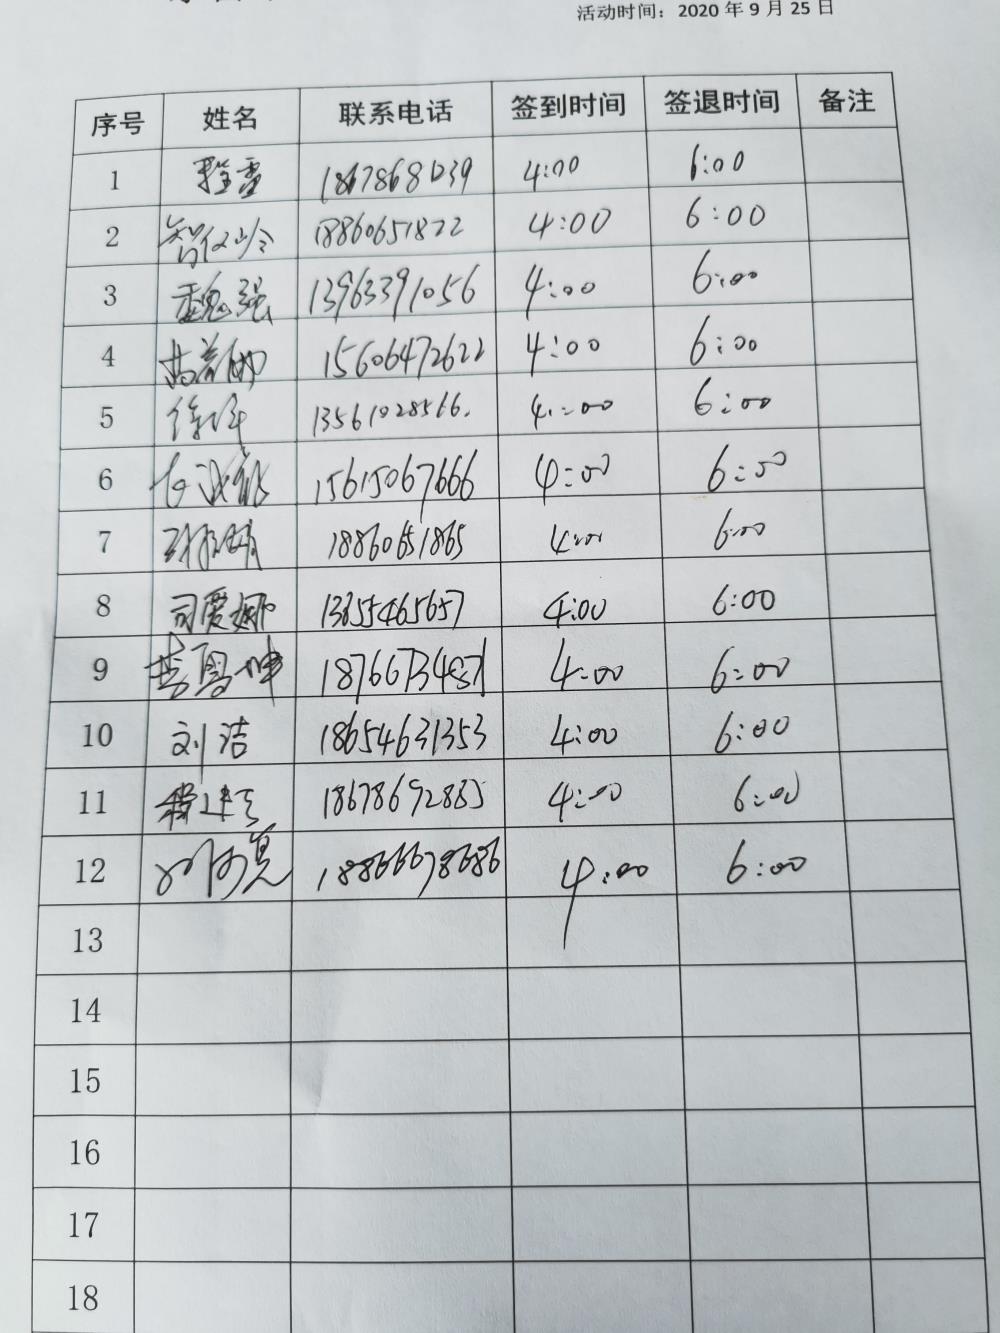 活动时间：2020年9月25日
序号 姓名 联系电话 签到时间 签退时间 备注
1 程雪 4:00 6:00
2 18860651822 4:00 6:00
3 魏强 13963391056 4:00 6:00
4 15606472622 4:00 6:00
5 13561028566. 4:00 6:00
6 15615067666 4:00 6:00
7 18860651865 4:00 6:00
8 司爱娜 13855465657 4:00 6:00
9 4:00 6:00
10 刘洁 18654631353 4:00 6:00
11 18678692885 4:00 6:00
12 18866678686 4:00 6:00
13
14
15
16
17
18